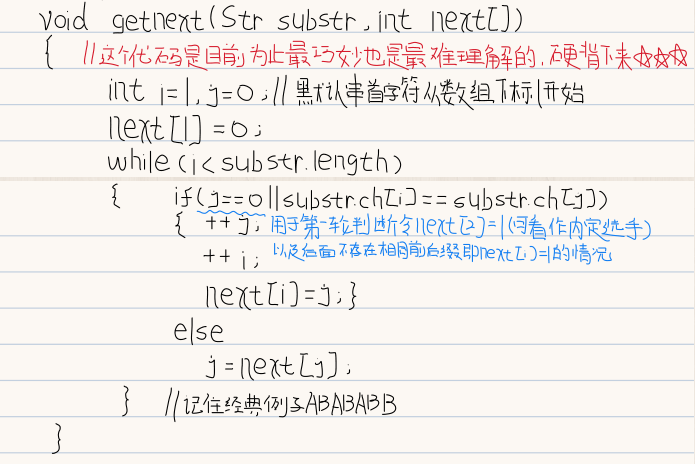 void getnext(Str substr,int next[])
{ //这个代码是目前为止最巧妙也是最难理解的,硬背下来☆☆☆
int i=1,j=0;//默认串首字符从数组下标1开始
next[1]=0;
while(i<substr.length)
{ if(j==0||substr.ch[i]==substr.ch[j])
{ ++j; 用于第一轮判断令next[2]=1(可看作内定选手)
++i; 以及后面不存在相同前后缀即next[i]=1的情况
next[i]=j;}
else
j=next[j];
} //记住经典例子ABABABB
}